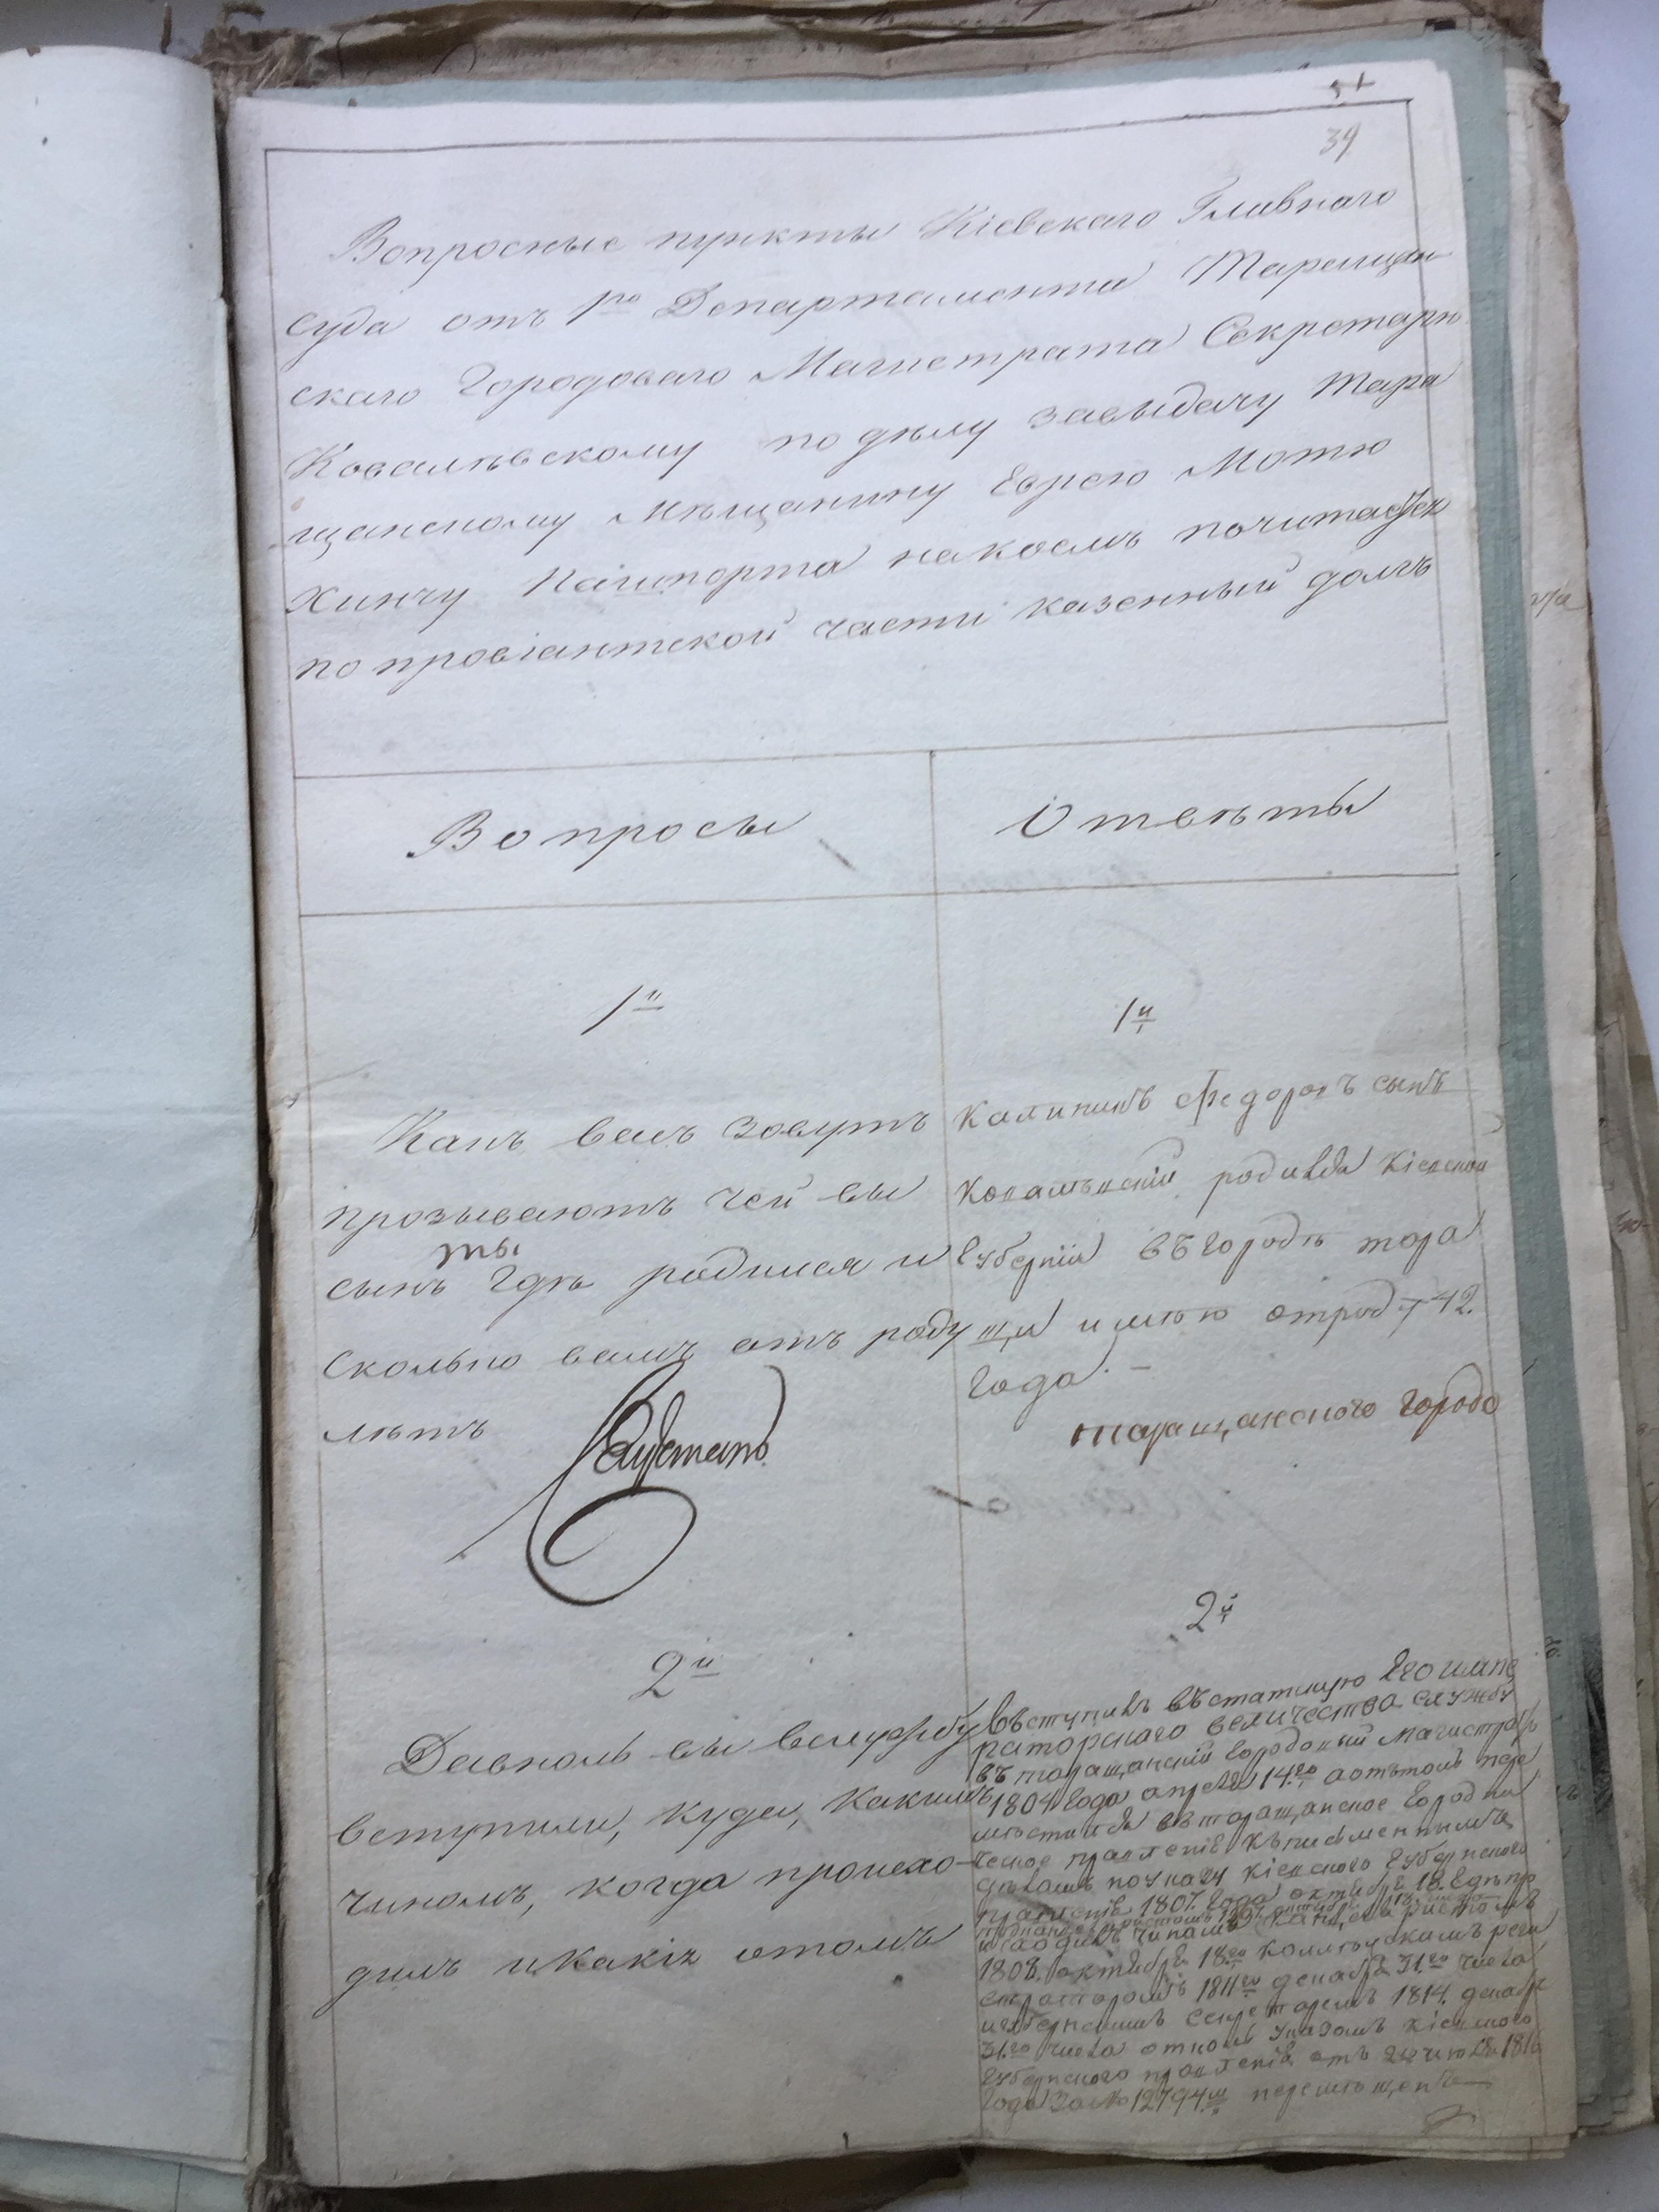 39
Вопросные пункты Кіевскаго Главнаго
суда отъ 1го Департамента Таращан
скаго Городоваго Магистрата Секретарю
Ковалевскому по дѣлу завыдачу Тара
щанскому Мѣщанину Еврею Мотю
Хинчу Пашпорта накоемъ почитается
по провіантской части казенный долгъ
Вопросы
Ответы
1й
1й
Какъ васъ зовутъ
прозываютъ чей вы
сынъ гдѣ родился и
ты
сколько вамъ отъ роду
лѣтъ
Калиникъ Федоровъ сынъ
Ковалевскій родился Кіевской
Губерніи въ городѣ тора
щи имѣю отроду 42.
года. —
таращанского городо
2й
2й
Давноль вы вслужбу
вступили, куда, какимъ
чиномъ, когда происхо-
дилъ икакіх отомъ
Въступилъ въстатшую Его импе
раторского величества службу
въ торащанскій городовый магистратъ
1804 года апреля 14го аотътоль пере
мѣстился въ торащанское городни
ческое правленіе къписменнымъ
дѣламъ поуказу кіевского губернского
правленіе 1807. года октября 18.
1808. октября 18го колежскимъ реги
стратором 1811го декабря 31го числа
игубернскимъ секретаремъ 1814. декабря
31го числа указомъ кіевского
губернского правленія отъ июля 1816
года за № 12794м перемѣщенъ